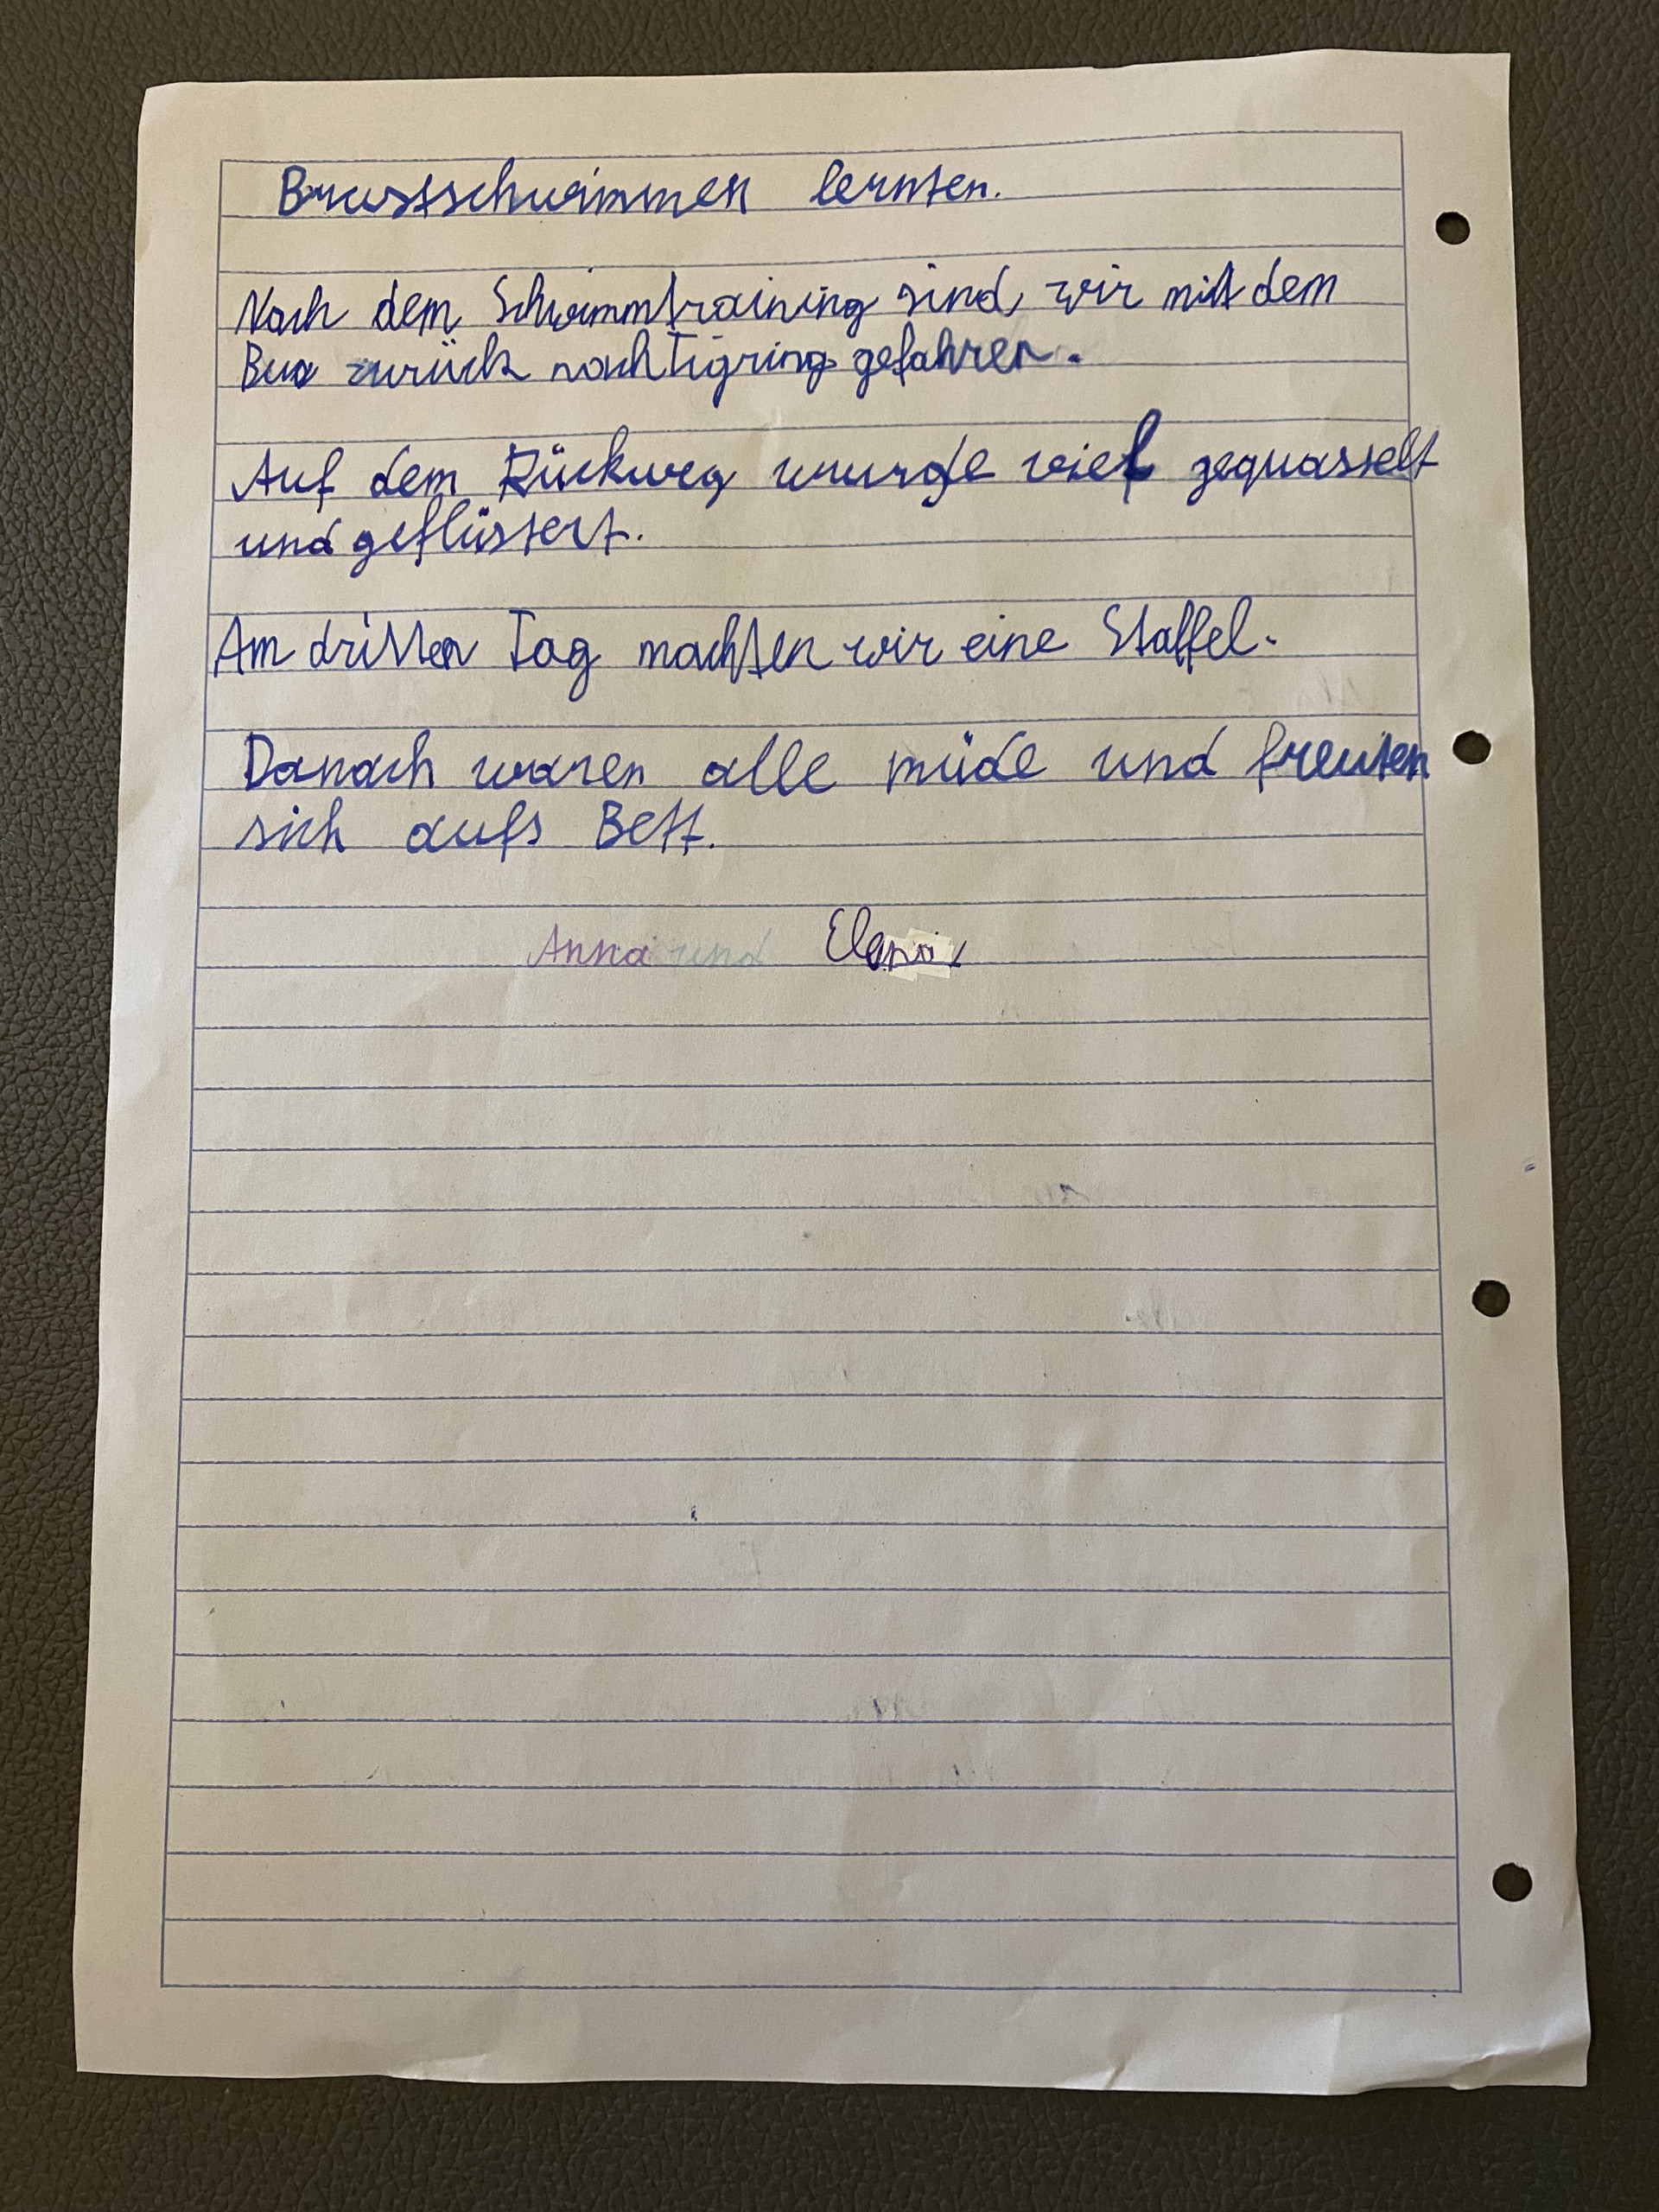 Brustschwimmen lernten.
Nach dem Schwimmtraining sind wir mit dem
Bus zurück nach Tigring gefahren.
Auf dem Rückweg wurde viel gequasselt
und geflüstert.
Am dritten Tag machten wir eine Staffel.
Danach waren alle müde und freuten
sich aufs Bett.
Anna und